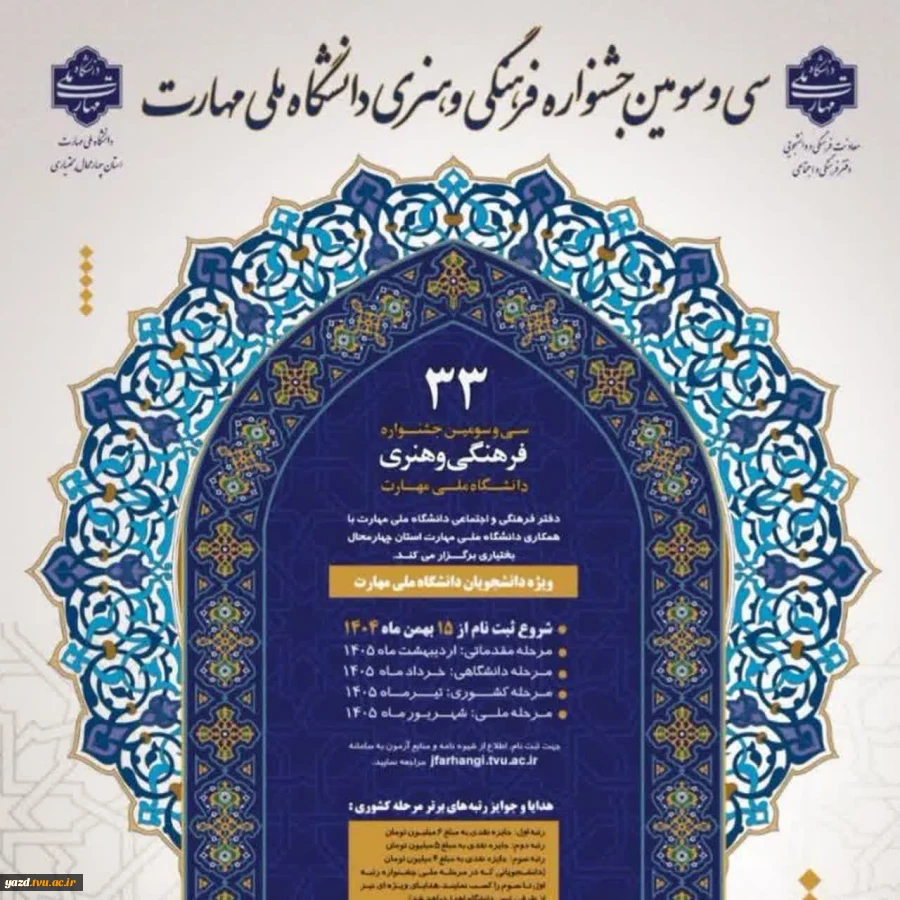 سی و سومین جشنواره فرهنگی و هنری دانشگاه ملی مهارت
دانشگاه
ملی
مهارت
معاونت فرهنگی و دانشجویی
دفتر فرهنگی و اجتماعی
دانشگاه
ملی
مهارت
دانشگاه ملی مهارت
استان چهارمحال و بختیاری
۳۳
سی و سومین جشنواره
فرهنگی و هنری
دانشگاه ملی مهارت
دفتر فرهنگی و اجتماعی دانشگاه ملی مهارت با
همکاری دانشگاه ملی مهارت استان چهارمحال
بختیاری برگزار می کند.
ویژه دانشجویان دانشگاه ملی مهارت
شروع ثبت نام از ۱۵ بهمن ماه ۱۴۰۴
مرحله مقدماتی: اردیبهشت ماه ۱۴۰۵
مرحله دانشگاهی: خرداد ماه ۱۴۰۵
مرحله کشوری: تیر ماه ۱۴۰۵
مرحله ملی: شهریور ماه ۱۴۰۵
جهت ثبت نام، اطلاع از شیوه نامه و منابع آزمون به سامانه
jfarhangi.tvu.ac.ir مراجعه نمایید.
هدایا و جوایز رتبه های برتر مرحله کشوری :
رتبه اول: جایزه نقدی به مبلغ ۶ میلیون تومان
رتبه دوم: جایزه نقدی به مبلغ ۵ میلیون تومان
رتبه سوم: جایزه نقدی به مبلغ ۴ میلیون تومان
(دانشجویانی که در مرحله ملی جشنواره رتبه
اول تا سوم را کسب نمایند، هدایای ویژه ای نیز
yazd.tvu.ac.ir